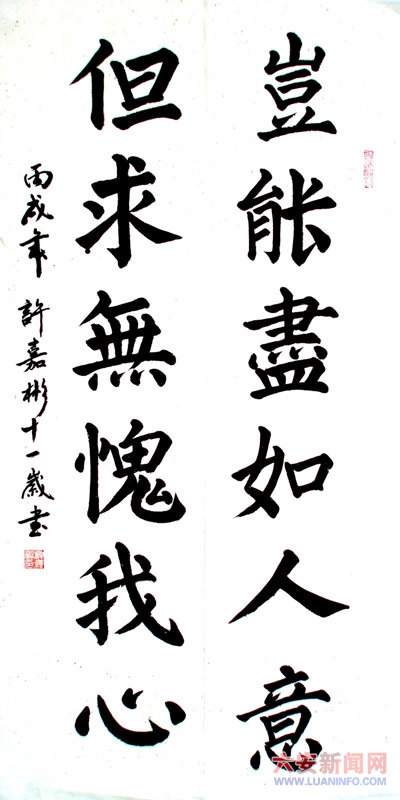 豈能盡如人意
但求無愧我心
丙戌年 許嘉彬十一歲書
六安新闻网
WWW.LUANINFO.COM